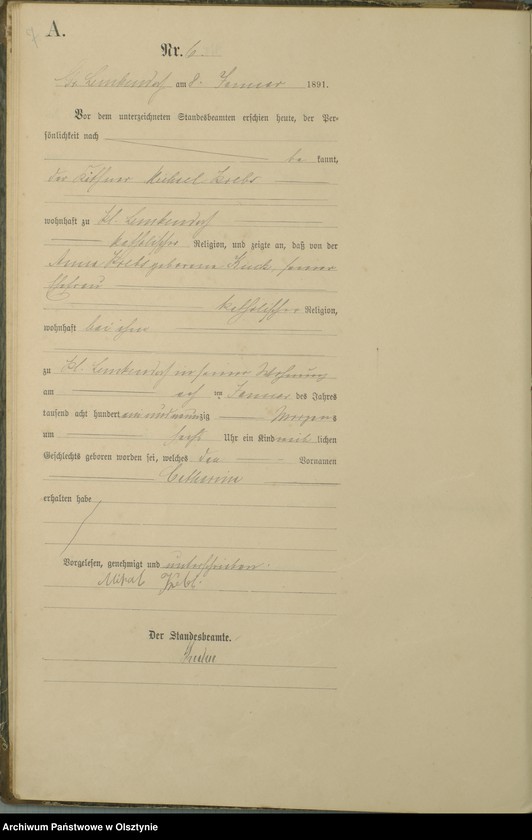 A.
Nr. 6
Gr. Lemkendorf am 8. Januar 1891.
Vor dem unterzeichneten Standesbeamten erschien heute, der Per-
sönlichkeit nach
be kannt,
der Käthner Michael Krebs
wohnhaft zu Kl. Lemkendorf
katholischer Religion, und zeigte an, daß von der
Anna Krebs geborene, seiner
Ehefrau
katholischer Religion,
wohnhaft bei ihm
zu Kl. Lemkendorf in seiner Wohnung
am ten Januar des Jahres
tausend acht hundert ein und neunzig Morgens
um Uhr ein Kind weib lichen
Geschlechts geboren worden sei, welches den Vornamen
Catharina
erhalten habe
Vorgelesen, genehmigt und unterschrieben.
Der Standesbeamte.
Archiwum Państwowe w Olsztynie